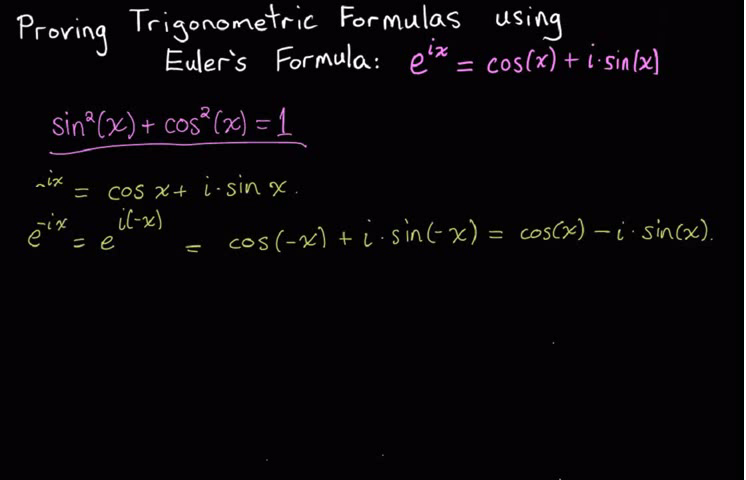 Proving Trigonometric Formulas using
Euler's Formula: e^{ix} = cos(x) + i·sin(x)
sin²(x) + cos²(x) = 1
^{ix} = cos x + i·sin x.
e^{-ix} = e^{i(-x)} = cos(-x) + i·sin(-x) = cos(x) - i·sin(x).